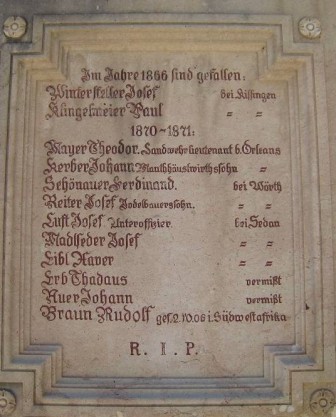 Im Jahre 1866 sind gefallen:
Wintersteller Josef bei Kissingen
Klingelmeier Paul " "
1870~1871:
Mayer Theodor. Landwehrlieutenant b. Orleans
Kerber Johann Mauthhäuslwirthssohn " "
Schönauer Ferdinand. bei Wörth
Reiter Josef Jodelbauerssohn. " "
Luft Josef. Unteroffizier. bei Sedan
Madlseder Josef " "
Eibl Xaver " "
Erb Thadäus vermißt
Auer Johann vermißt
Braun Rudolf gef. 2.10.06 i. Südwestafrika
R. I. P.